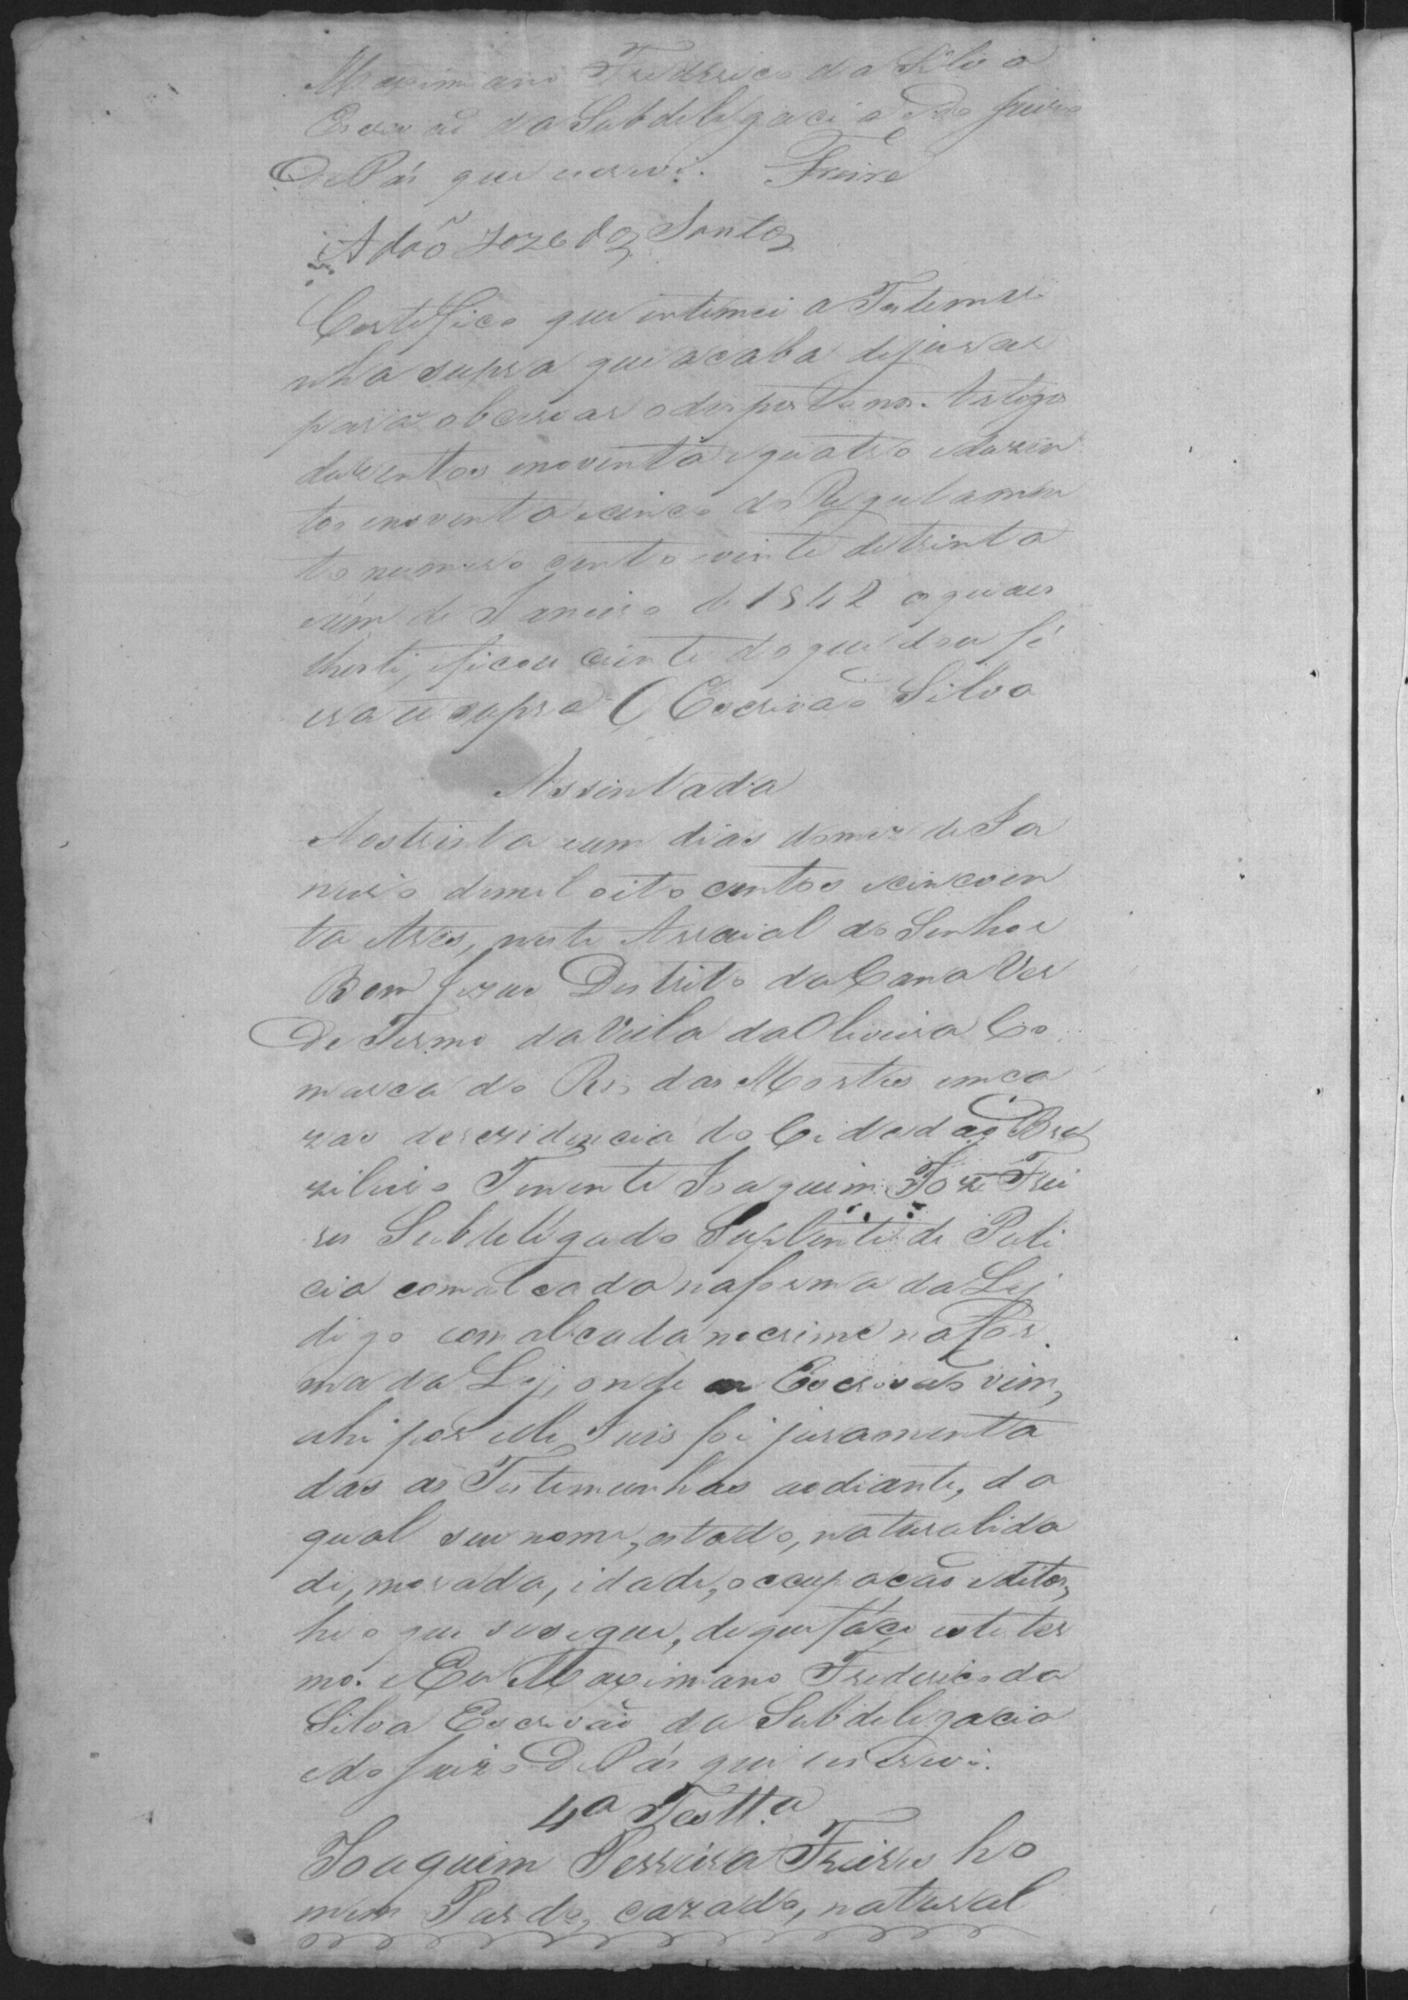 Maximiano Frederico da Silva
Escrivaõ da Subdelegacia e do Juizo
De Pás que escrevi. Freire
Adaõ Joze dos Santos
Certefico que intimei a Testemu
nha supra que acaba de jurar
para observar o desposto nos Artigos
duzentos enoventa e quatro eduzen
tos enoventa ecinco do Regulamen
to numero cento evinte de trinta
eum de Janeiro de 1842 o que aes
ficou ciente do que dou fé
era ut supra O Escrivaõ Silva
Assentada
Aos trinta eum dias do mez de Ja
neiro de mil oito centos ecincoen
ta etres, neste Arraial do Senhor
Bom Jezus Destrito da Cana Ver
De Termo da Villa da Oliveira Co
marca do Rio das Mortes em ca
zas de rezidencia do Cidadaõ Bra
zileiro Tenente Joaquim Joze Frei
re Subdelegado Suplente de Poli
cia com alcada na forma da Lej
digo com alcada no crime na for
ma da Lej, onde eu Escrivaõ vim,
ahi por elle Juis foi juramenta
das as Testemunhas aodiante, do
qual seu nome, estado, naturalida
de, morada, idade, occupacaõ editos,
he o que se segue, de que faço este ter
mo. Eu Maximiano Frederico da
Silva Escrivaõ da Subdelegacia
edo Juizo De Pás que escrevi.
4ª Testª
Joaquim Ferreira Freire ho
mem Pardo, cazado, natural